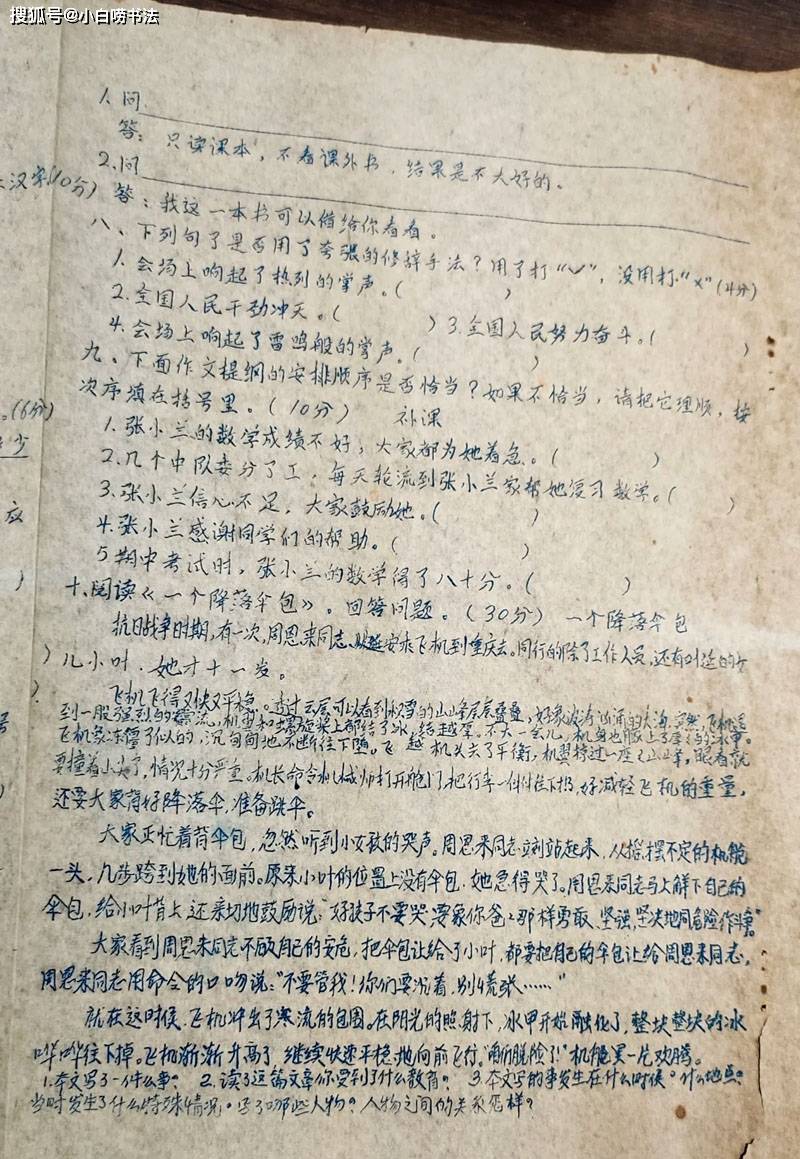 搜狐号@小白唠书法
1.问
答：只读课本，不看课外书，结果是不大好的。
2.问
汉字(10分)
答：我这一本书可以借给你看看。
八、下列句子是否用了夸张的修辞手法？用了打"✓"，没用打"×"(4分)
1.会场上响起了热烈的掌声。( )
2.全国人民干劲冲天。( ) 3.全国人民努力奋斗。( )
4.会场上响起了雷鸣般的掌声。( )
九、下面作文提纲的安排顺序是否恰当？如果不恰当，请把它理顺，按
次序填在括号里。(10分) 补课
。(6分)
少
1.张小兰的数学成绩不好，大家都为她着急。( )
2.几个中队委分了工，每天轮流到张小兰家帮她复习数学。( )
3.张小兰信心不足，大家鼓励她。( )
应
4.张小兰感谢同学们的帮助。( )
5期中考试时，张小兰的数学得了八十分。( )
)
十、阅读《一个降落伞包》。回答问题。(30分) 一个降落伞包
抗日战争时期，有一次，周恩来同志从延安乘飞机到重庆去。同行的除了工作人员，还有叶挺的女
) 儿小叶．她才十一岁。
飞机飞得又快又平稳。透过云层可以看到积雪的山峰层层叠叠，好象波涛汹涌的大海。突然飞机遇
到一股强烈的寒流，机翼和螺旋桨上都结了冰，越结越厚。不大一会儿，机身也
飞机象冻僵了似的，沉甸甸地不断往下坠。飞机失去了平衡，机翼擦过一座山峰，眼看就
要撞着山尖了，情况十分严重。机长命令机械师打开舱门，把行李一件件往下扔，好减轻飞机的重量，
还要大家背好降落伞，准备跳伞。
大家正忙着背伞包，忽然听到小女孩的哭声。周恩来同志立刻站起来，从摇摆不定的机舱
一头，几步跨到她的面前。原来小叶的位置上没有伞包．她急得哭了。周恩来同志马上解下自己的
伞包，给小叶背上，还亲切地鼓励说："好孩子不要哭，要象你爸爸那样勇敢、坚强，坚决地同危险作斗争。"
大家看到周恩来同志不顾自己的安危，把伞包让给了小叶，都要把自己的伞包让给周恩来同志，
周恩来同志用命令的口吻说："不要管我！你们要沉着，别慌张……"
就在这时候．飞机冲出了寒流的包围。在阳光的照射下，冰甲开始融化了，整块整块的冰
哗哗往下掉。飞机渐渐升高了，继续快速平稳地向前飞行，"脱险了！"机舱里一片欢腾。
1.本文写了一件什么事？ 2.读了这篇文章你受到了什么教育？ 3.本文写的事发生在什么时候。什么地点？
当时发生了什么特殊情况。写了哪些人物？人物之间的关系怎样？